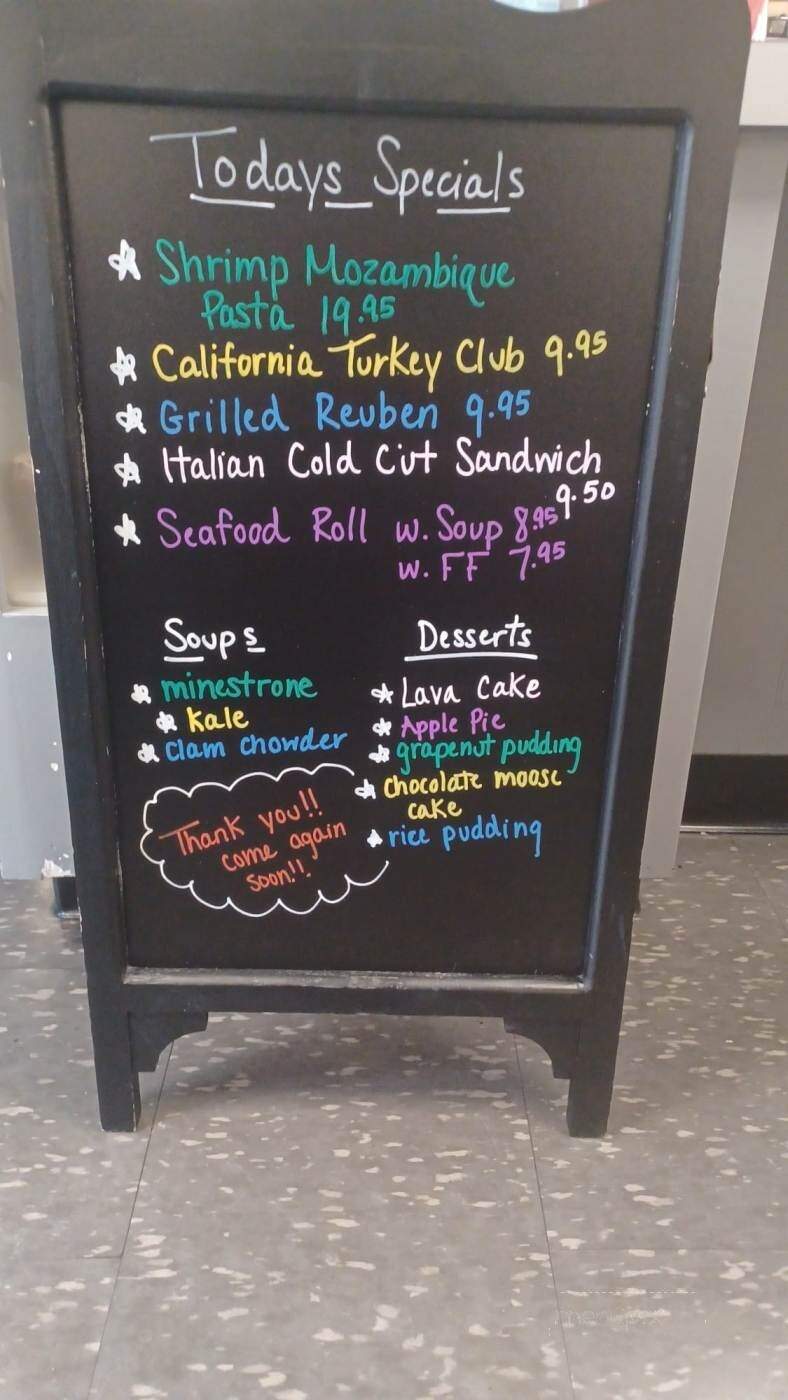 Todays Specials
Shrimp Mozambique
Pasta 19.95
California Turkey Club 9.95
Grilled Reuben 9.95
Italian Cold Cut Sandwich
9.50
Seafood Roll w. Soup 8.95
w. FF 7.95
Soups
minestrone
Kale
clam chowder
Desserts
Lava Cake
Apple Pie
grapenut pudding
chocolate moose
cake
rice pudding
Thank you!!
come again
soon!!